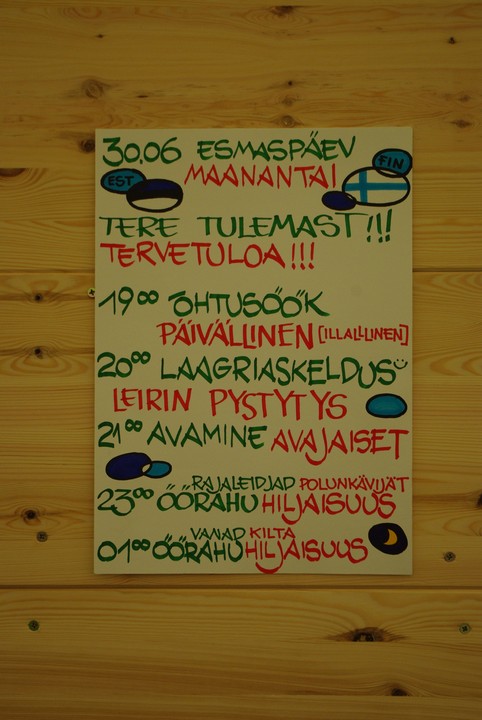 30.06 ESMASPÄEV
FIN
EST
MAANANTAI
TERE TULEMAST!!!
TERVETULOA!!!
19⁰⁰ ÕHTUSÖÖK
PÄIVÄLLINEN [ILLALLINEN]
20⁰⁰ LAAGRIASKELDUS
LEIRIN PYSTYTYS
21⁰⁰ AVAMINE AVAJAISET
RAJALEIDJAD POLUNKÄVIJÄT
23⁰⁰ ÖÖRAHU HILJAISUUS
VANAD KILTA
01⁰⁰ ÖÖRAHU HILJAISUUS